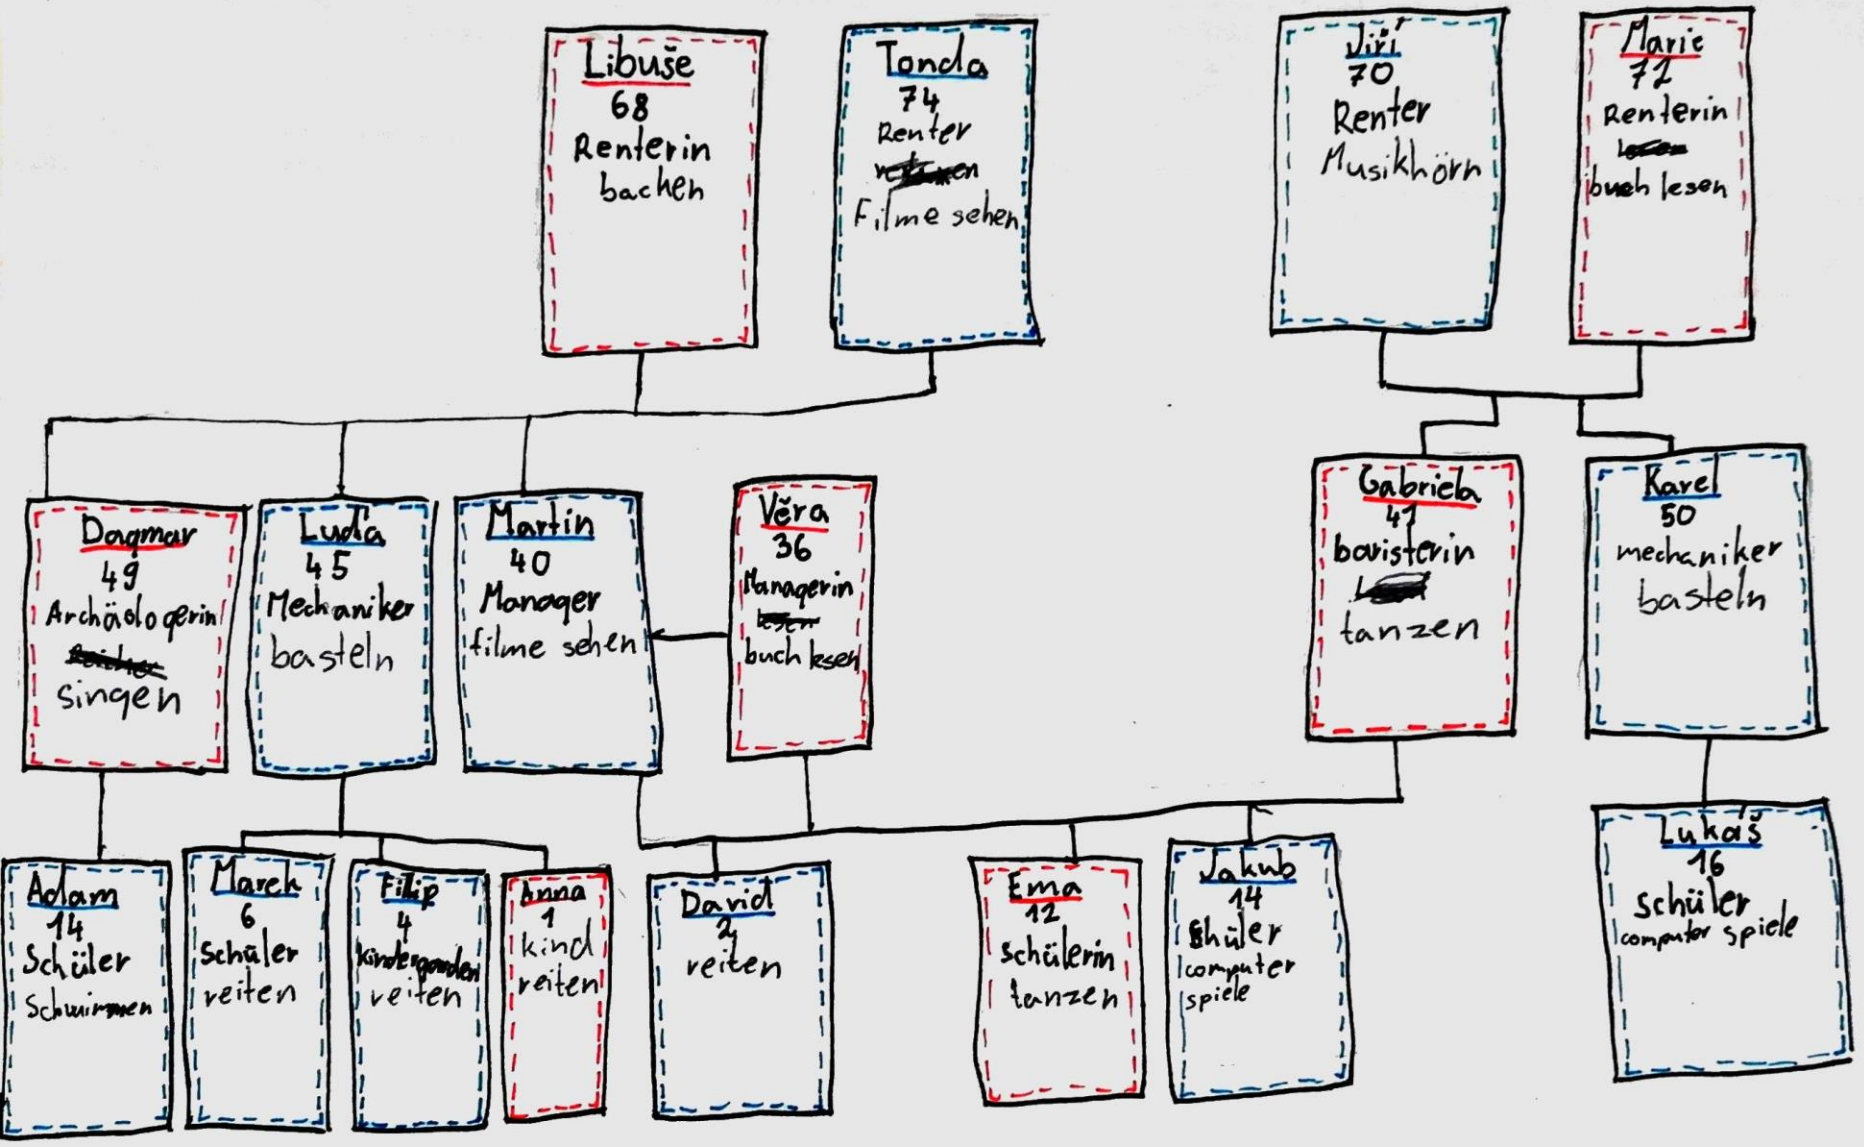 Libuše
68
Renterin
backen
Tonda
74
Renter
Filme sehen
Jiří
70
Renter
Musikhörn
Marie
72
Renterin
buch lesen
Dagmar
49
Archäologerin
singen
Luďa
45
Mechaniker
basteln
Martin
40
Manager
filme sehen
Věra
36
Managerin
lesen
buch lesen
Gabriela
41
baristerin
tanzen
Karel
50
mechaniker
basteln
Adam
14
Schüler
Schwimmen
Marek
6
Schüler
reiten
Filip
4
kindergarden
reiten
Anna
1
kind
reiten
David
2
reiten
Ema
12
Schülerin
tanzen
Jakub
14
Shüler
computer
spiele
Lukáš
16
Schüler
computer spiele